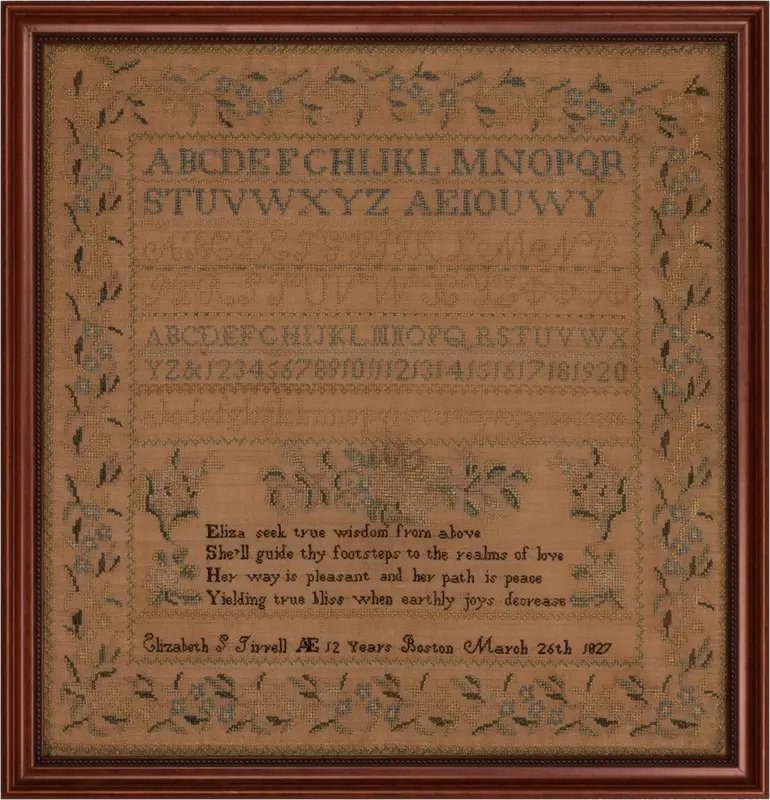 ABCDEFGHIJKL MNOPQR
STUVWXYZ AEIOUWY
ABCDEFGHIJKLMNOPQRSTUVWX
YZ&1234567891011121314151617181920
Eliza seek true wisdom from above
She'll guide thy footsteps to the realms of love
Her way is pleasant and her path is peace
Yielding true bliss when earthly joys decrease
Elizabeth S Tirrell Æ 12 Years Boston March 26th 1827